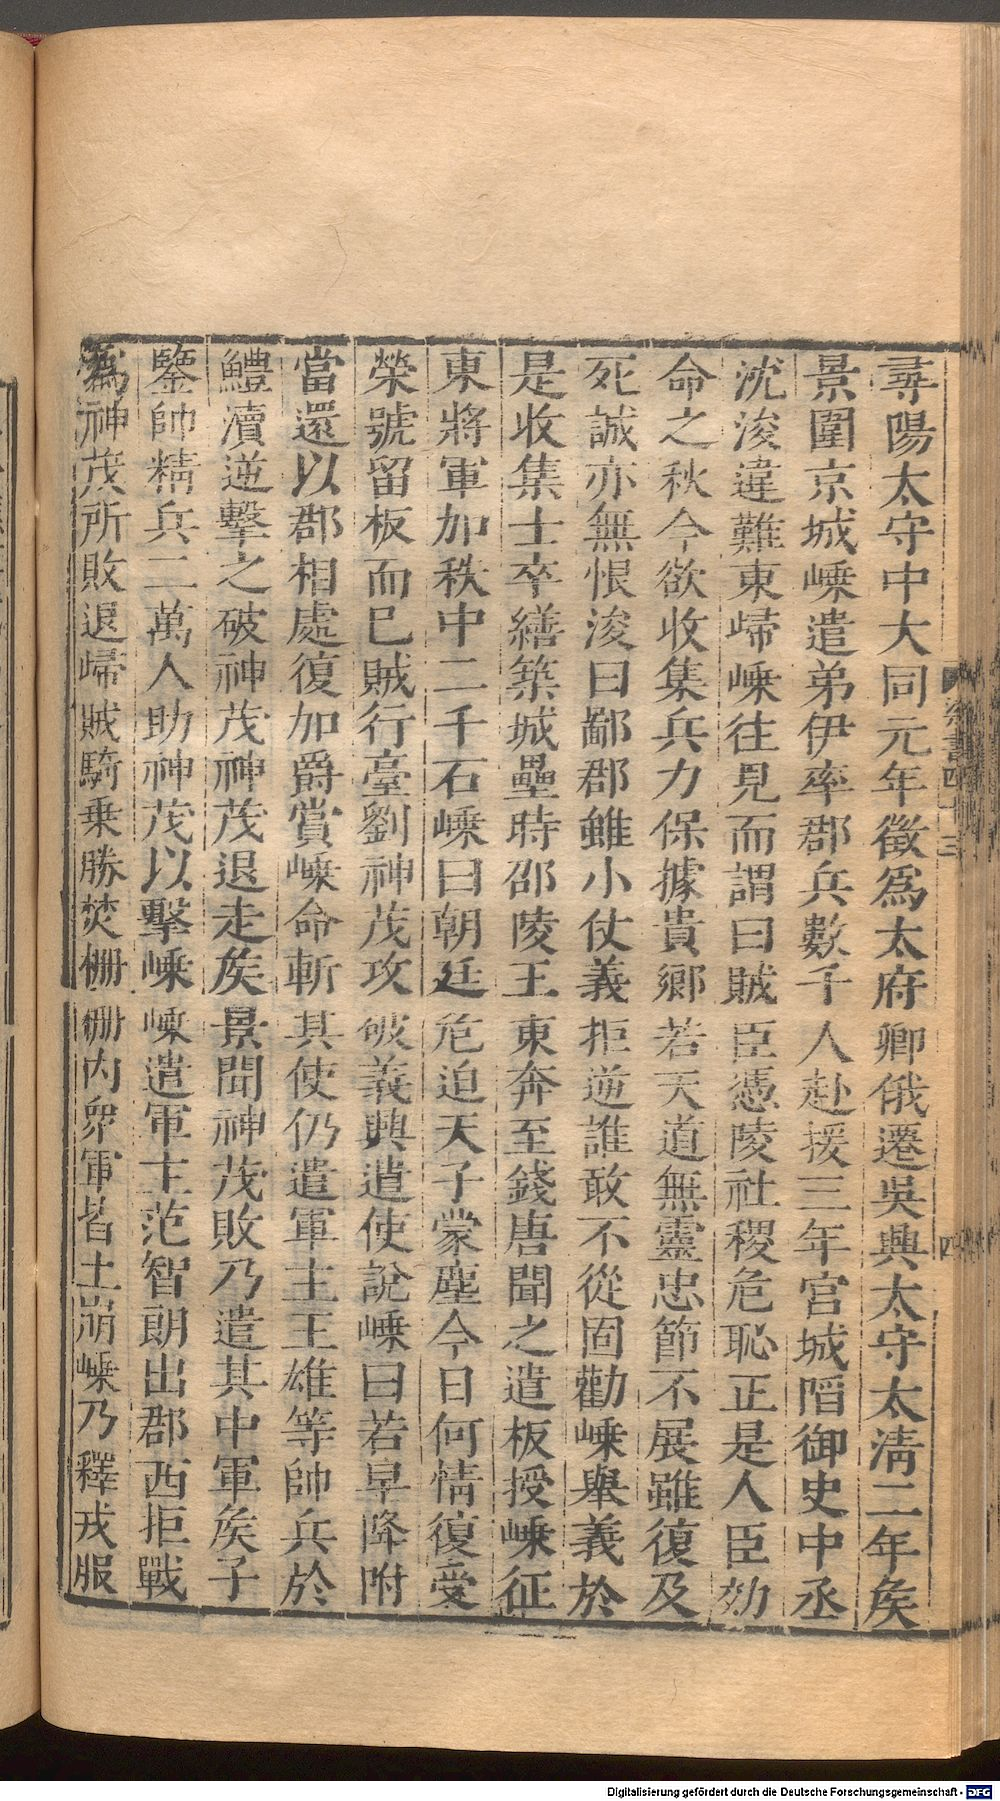 尋陽太守中大同元年徵爲太府卿俄遷吳興太守太清二年矦
景圍京城嵊遣弟伊率郡兵數千人赴援三年宫城䧟御史中丞
沈浚違難東歸嵊往見而謂曰賊臣憑陵社稷危恥正是人臣効
命之秋今欲收集兵力保據貴鄉若天道無靈忠節不展雖復及
死誠亦無恨浚曰鄙郡雖小仗義拒逆誰敢不從固勸嵊舉義於
是收集士卒繕築城壘時邵陵王東奔至錢唐聞之遣板授嵊征
東將軍加秩中二千石嵊曰朝廷危迫天子蒙塵今日何情復受
榮號留板而已賊行臺劉神茂攻破義興遣使說嵊曰若早降附
當還以郡相處復加爵賞嵊命斬其使仍遣軍主王雄等帥兵於
鱧瀆逆擊之破神茂神茂退走矦景聞神茂敗乃遣其中軍矦子
鑒帥精兵二萬人助神茂以擊嵊嵊遣軍主范智朗出郡西拒戰
爲神茂所敗退歸賊騎乗勝焚柵柵内衆軍皆土崩嵊乃釋戎服
梁書四十三
四
Digitalisierung gefördert durch die Deutsche Forschungsgemeinschaft - DFG